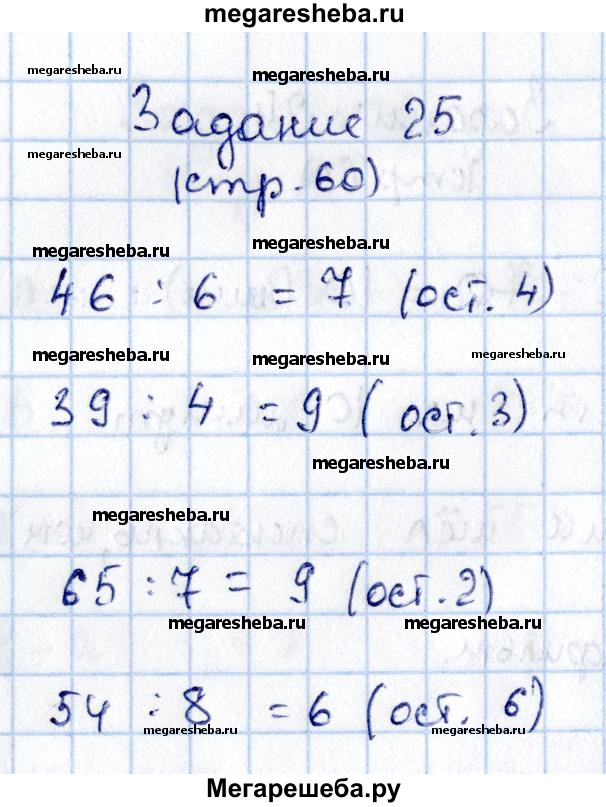 megaresheba.ru
megaresheba.ru megaresheba.ru
Задание 25
megaresheba.ru
(стр. 60)
megaresheba.ru megaresheba.ru
46 : 6 = 7 (ост. 4)
megaresheba.ru megaresheba.ru megaresheba.ru
39 : 4 = 9 (ост. 3)
megaresheba.ru
megaresheba.ru
65 : 7 = 9 (ост. 2)
megaresheba.ru megaresheba.ru
54 : 8 = 6 (ост. 6)
megaresheba.ru megaresheba.ru
Мегарешеба.ру